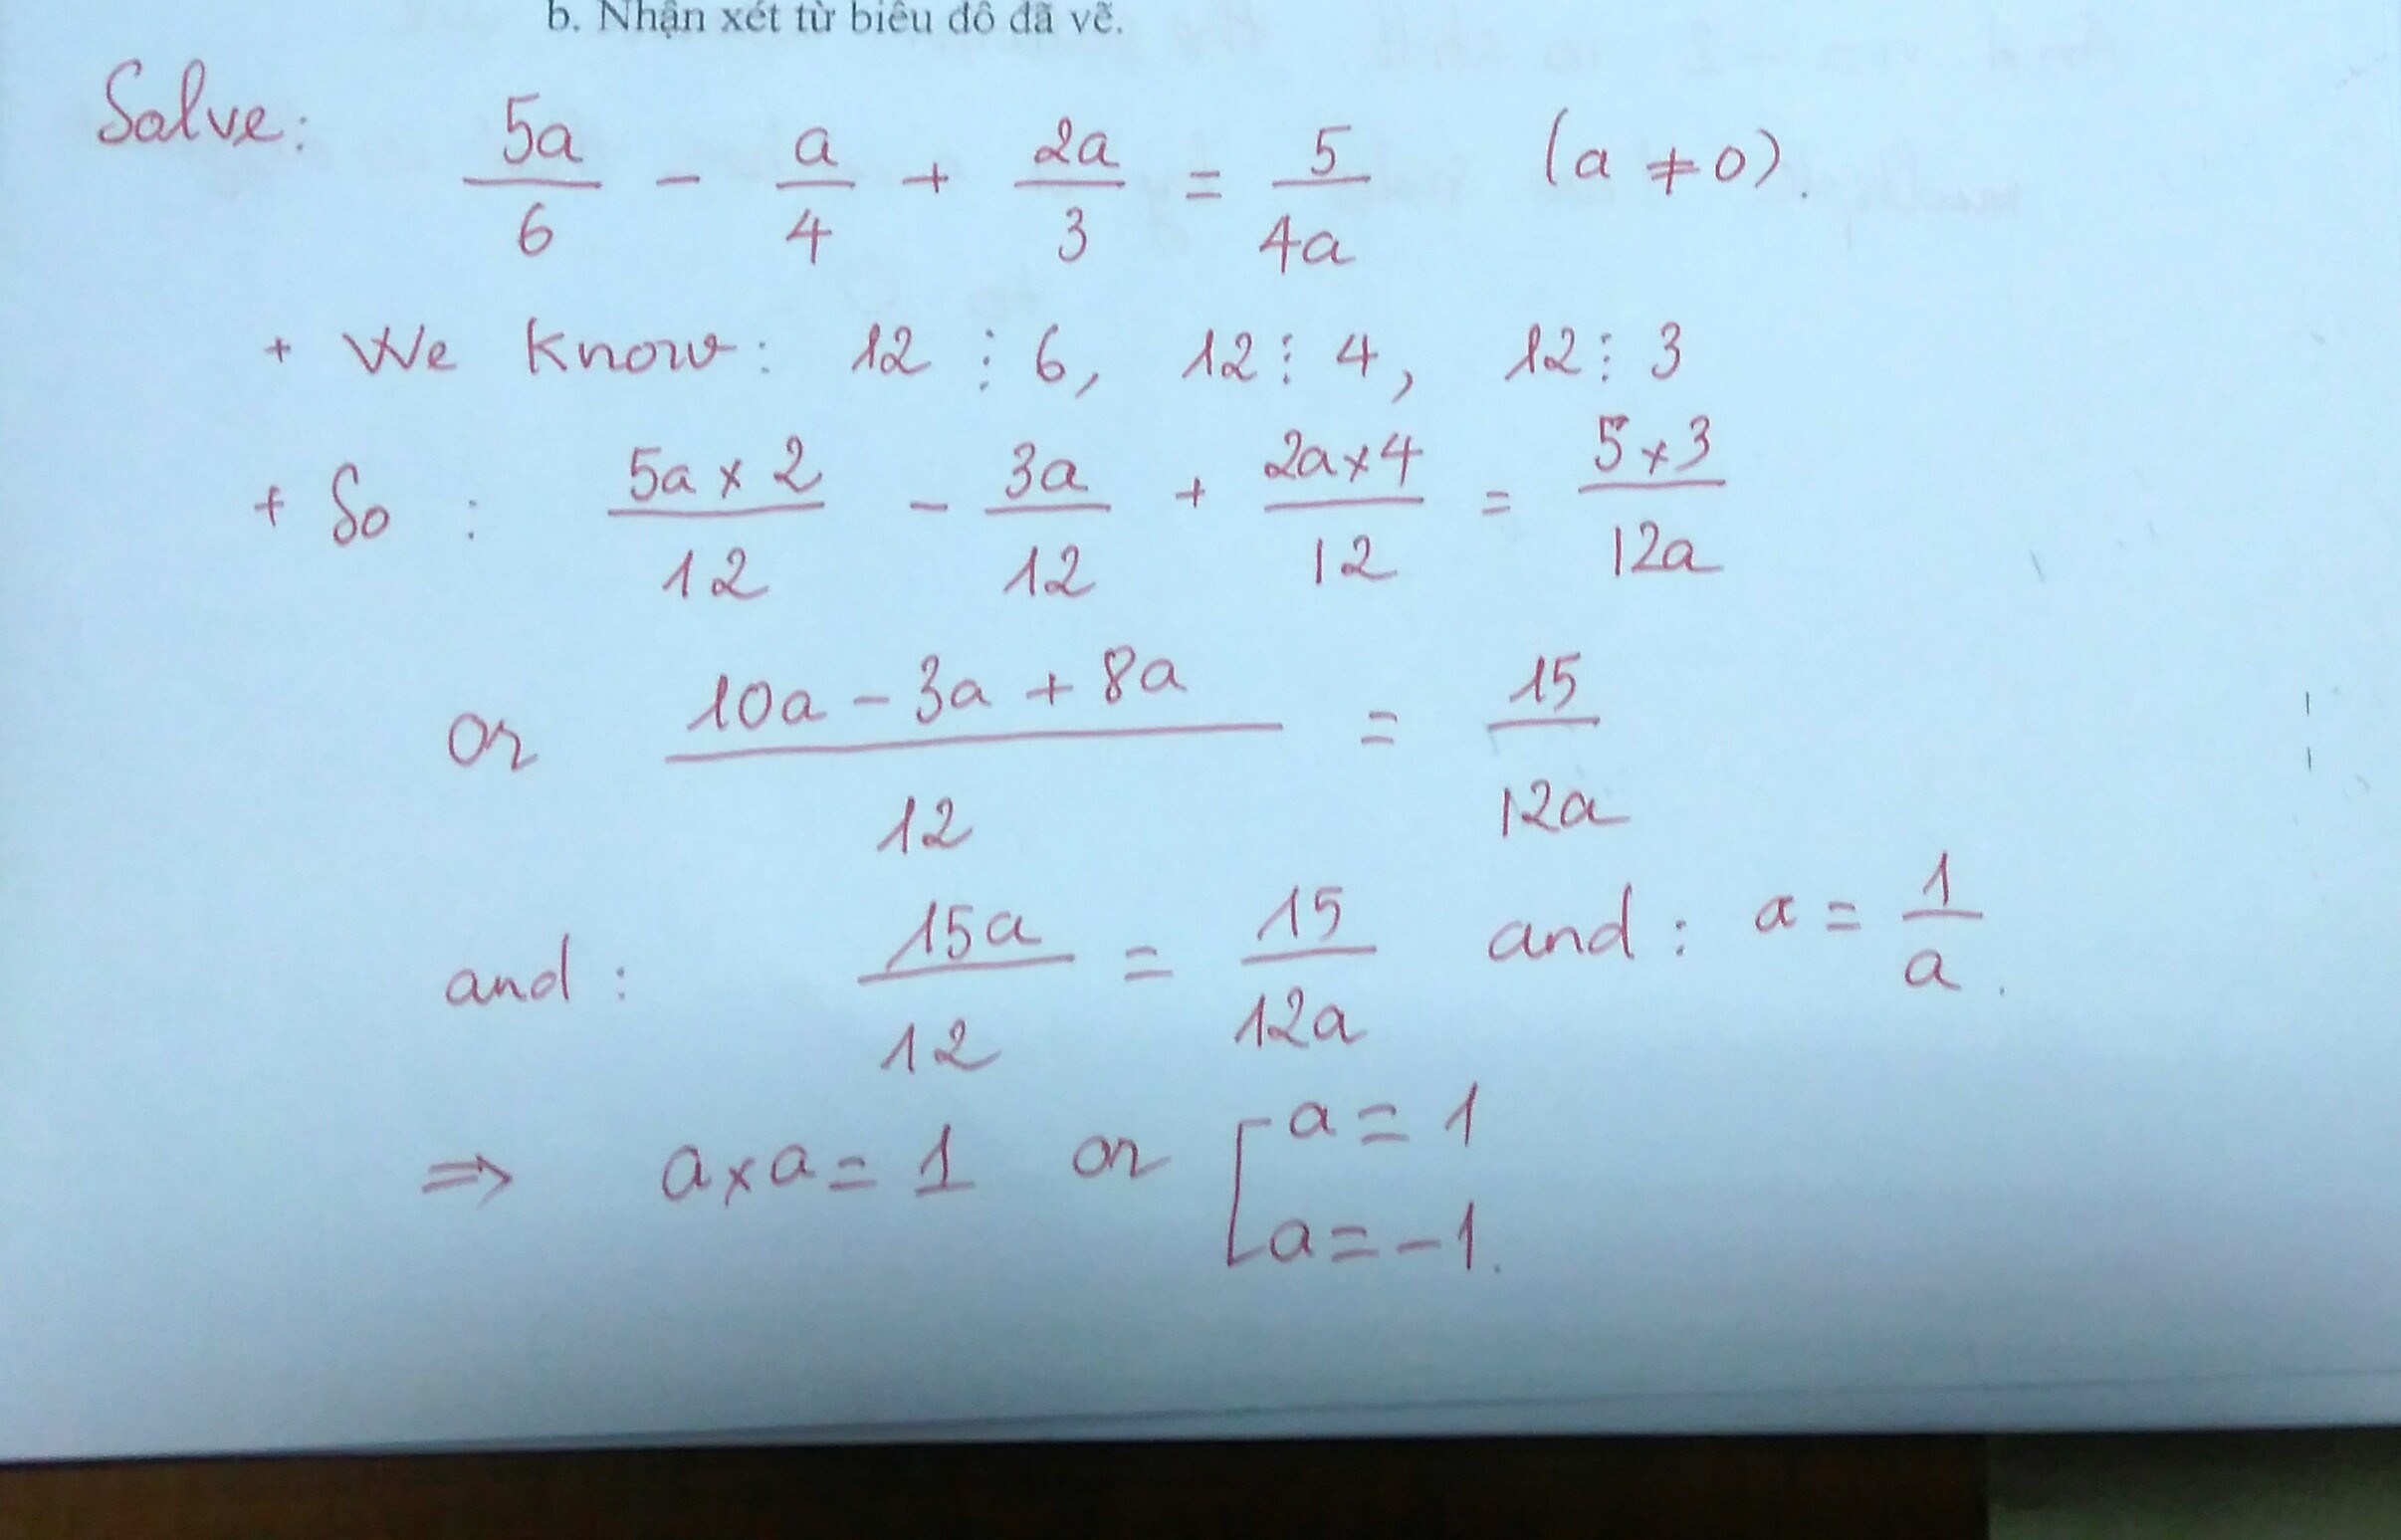 b. Nhận xét từ biểu đồ đã vẽ.
Solve: 5a/6 - a/4 + 2a/3 = 5/4a (a ≠ 0).
+ We know: 12 ⋮ 6, 12 ⋮ 4, 12 ⋮ 3
+ So : 5a × 2/12 - 3a/12 + 2a×4/12 = 5×3/12a
or 10a - 3a + 8a/12 = 15/12a
and : 15a/12 = 15/12a and : a = 1/a.
⇒ a × a = 1 or [a = 1
a = -1.